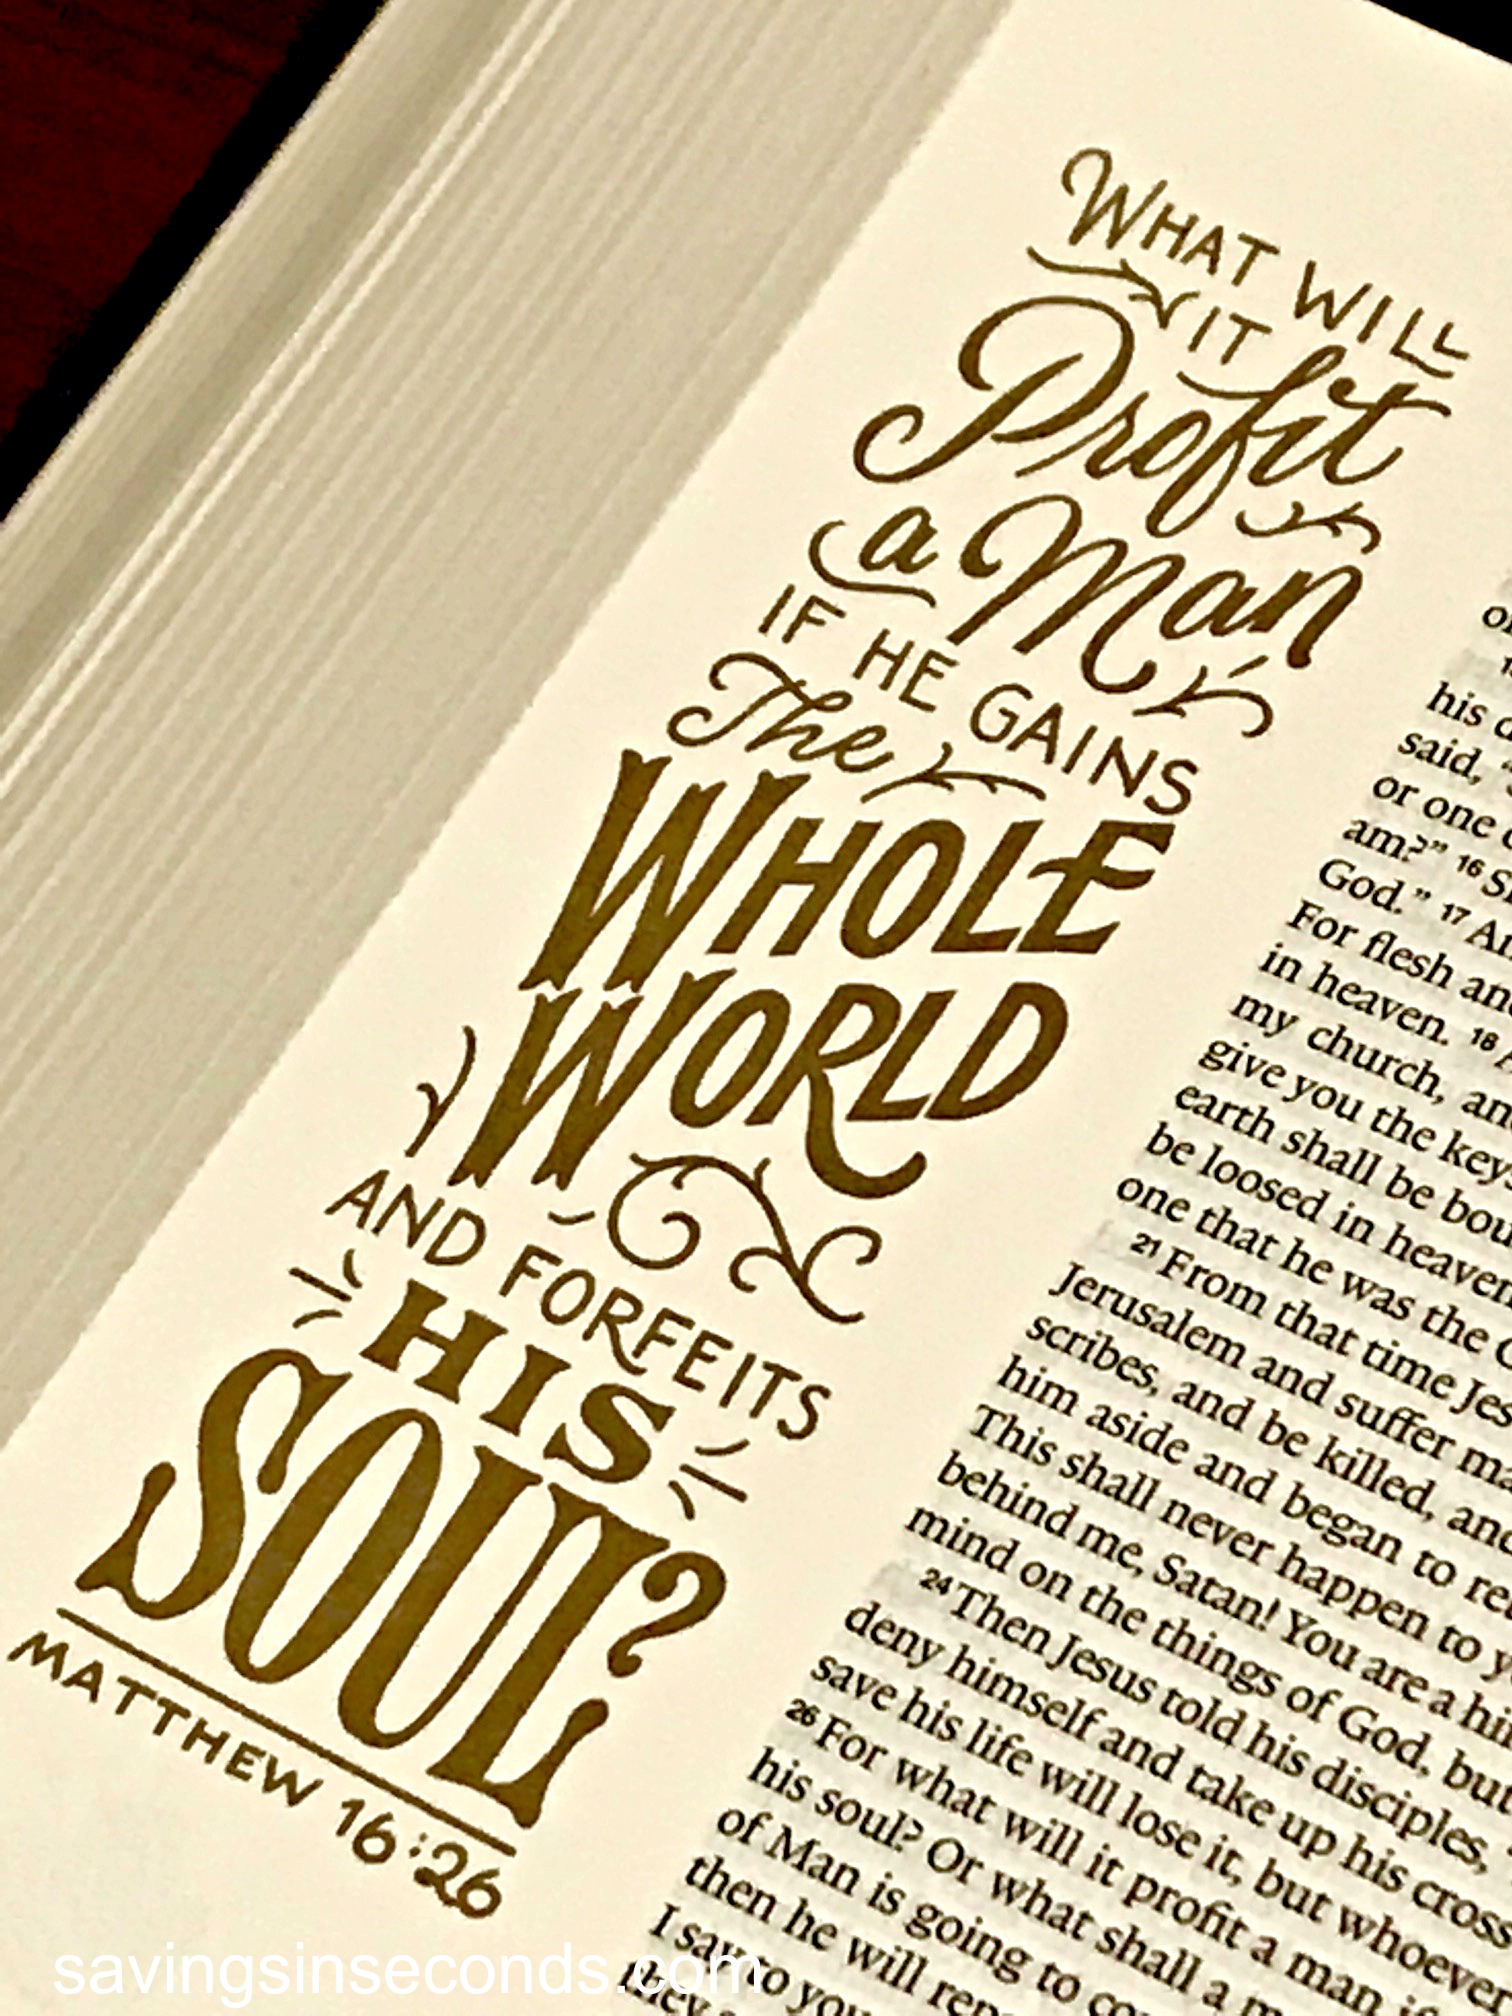 WHAT WILL
IT
Profit
a Man
IF HE GAINS
The
WHOLE
WORLD
AND FORFEITS
HIS
SOUL?
MATTHEW 16:26
his
said,
or one
am?" 16
God." 17
For flesh
in heaven. 18
my church,
give you the
earth shall be
be loosed in
one that he was the
21 From that time
Jerusalem and suffer
scribes, and be killed,
him aside and began to
This shall never happen to
behind me, Satan! You are a
mind on the things of God, but
24 Then Jesus told his disciples,
deny himself and take up his cross
save his life will lose it, but whoever
26 For what will it profit a man
his soul? Or what shall a
of Man is going to
then he will
I say to you
they
savingsinseconds.com